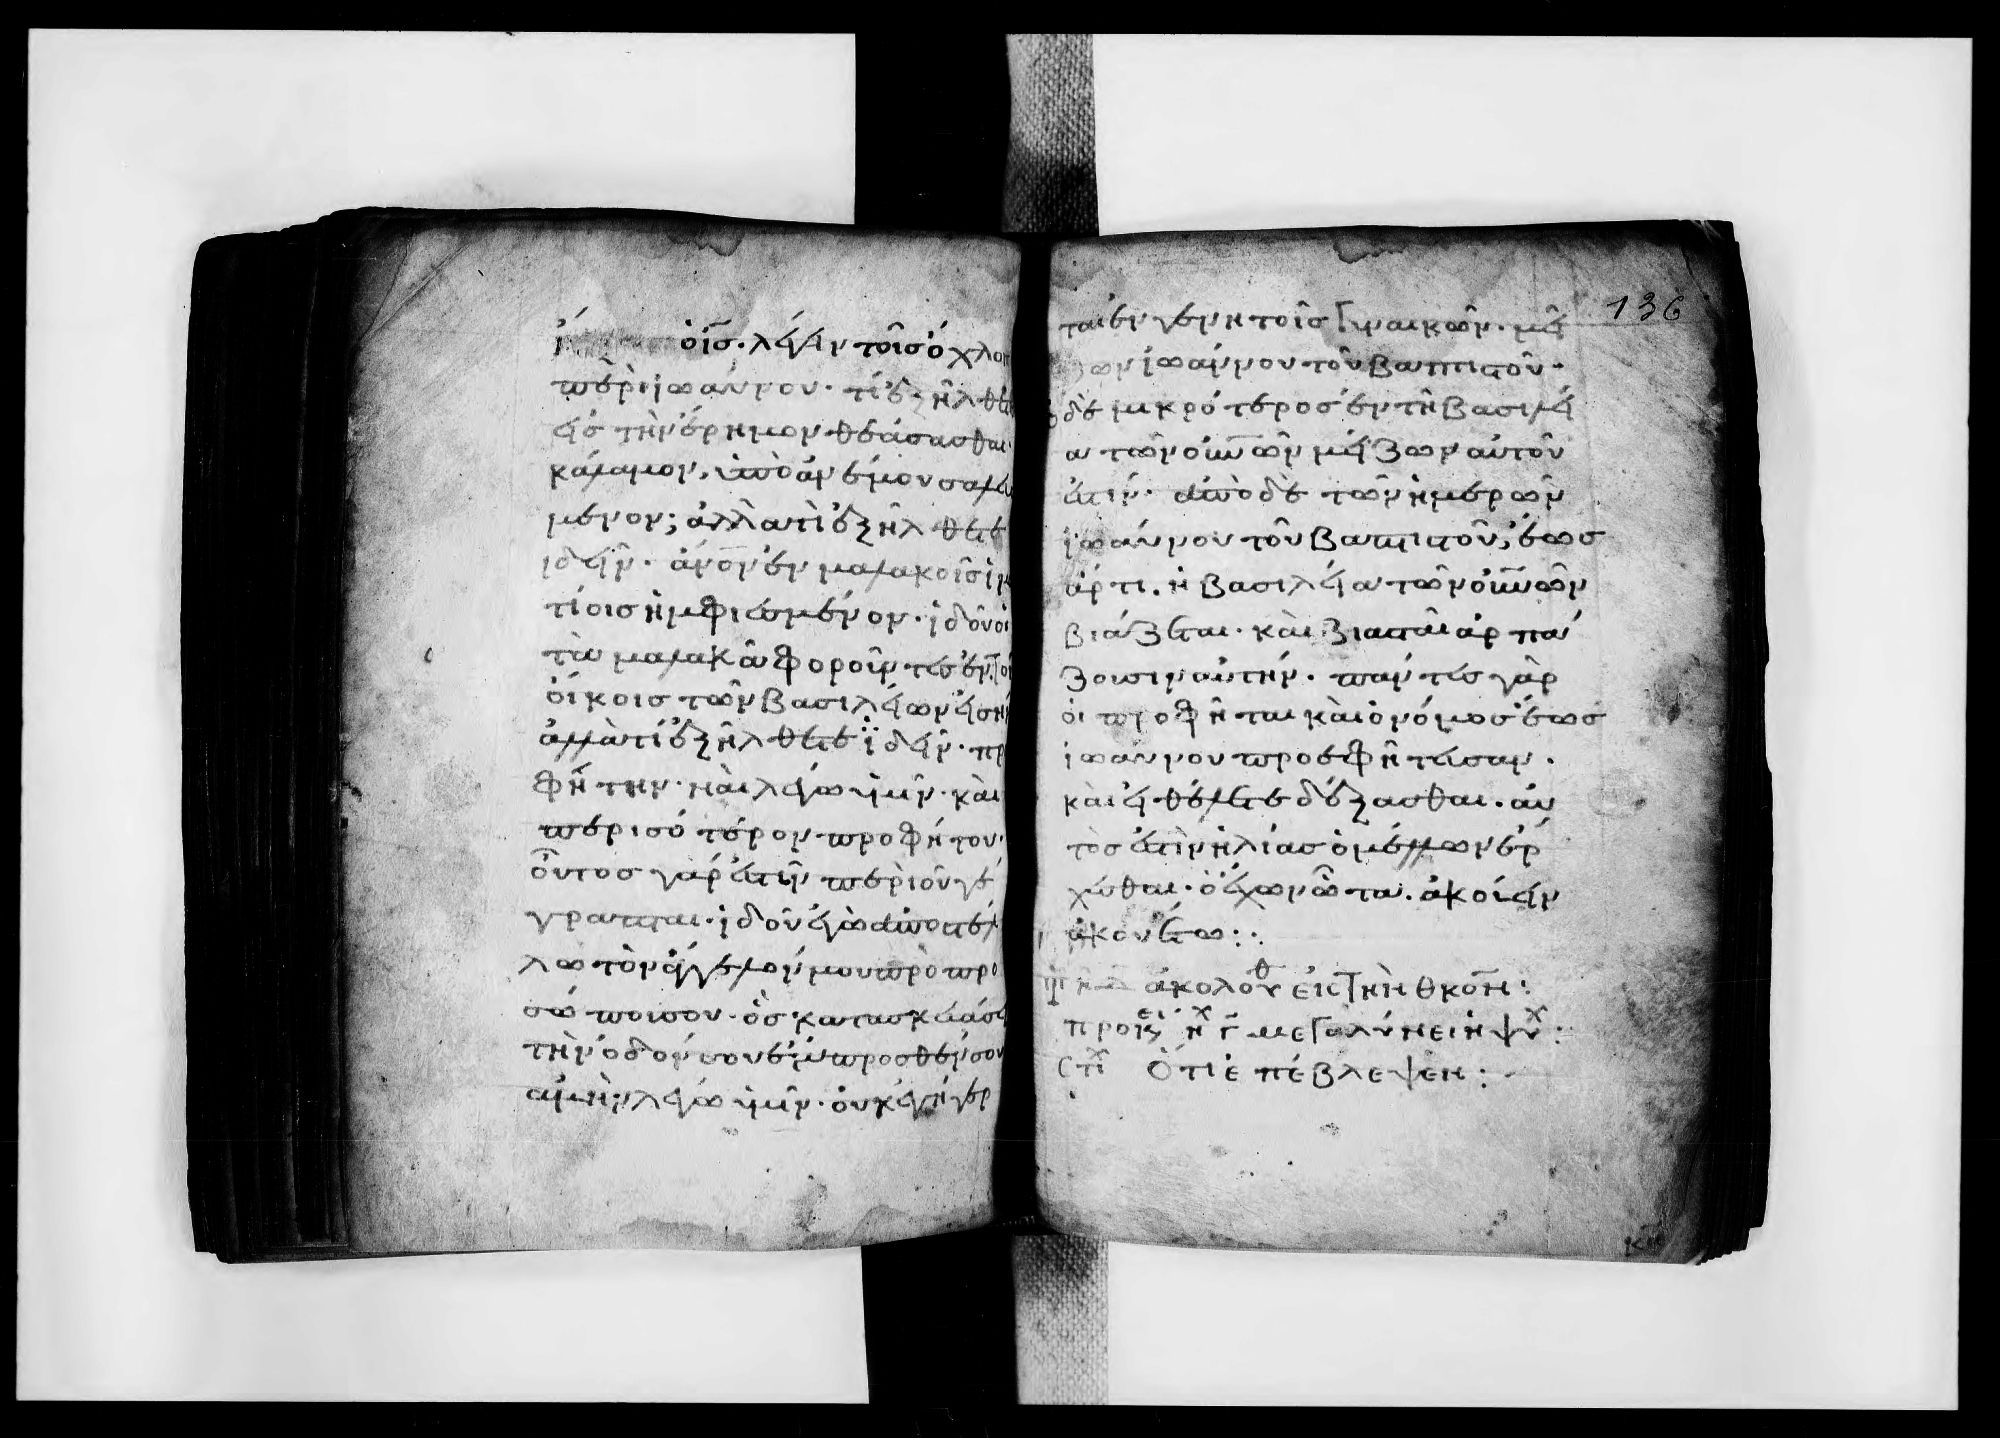 ὁ ις̅. λέγειν τοῖς όχλοις
περὶ ἰωάννου. τί ἐξῆλθετε
εἰς τὴν ἔρημον θεάσασθαι.
κάλαμον, ὑπὸ ἀνέμου σαλευ
μένον; ἀλλὰ τὶ ἐξῆλθετε
ἰδεῖν. ἄνον̅ ἐν μαλακοῖς ἱμ
τίοις ἠμφιεσμένον. ἰδοῦ οἱ
τὰ μαλακὰ φοροῦντες ἐν τοῖ
οἴκοις τῶν βασιλέων εἰσὴν
ἀλλὰ τί ἐξῆλθετε ϊδεῖν. πρ
φήτην. ναὶ λέγω ὑμῖν. καὶ
περισότερον προφήτου.
οὗτος γάρ ἐστὶν περὶ οὗ γέ
γραπται. ἰδοῦ ἐγὼ ἀποστέλ
λω τὸν ἄγγελον μου πρὸ προ
σώπου σου. ὃς κατασκευάσει
τὴν ὁδόν σου ἔμπροσθέν σου
αμὴν λέγω ὑμῖν. οὐκ ἐγήγερ
136
ται ἐν γεννητοῖς γυναικῶν. μεί
ζων ἰωάννου τοῦ βαπτιστοῦ.
ὁ δὲ μικρότερος ἐν τῆ βασιλεί
α τῶν οὐν̅ῶν μείζων αὐτοῦ
ἐστιν. ἀπὸ δὲ τῶν ἡμερῶν
ἰωάννου τοῦ βαπτιστοῦ, ἕως
ἄρτι. ἡ βασιλεία τῶν οὐν̅ῶν
βιάζεται. καὶ βιασταὶ ἁρπά
ζουσιν αὐτήν. πάντες γὰρ
οἱ προφῆται καὶ ὁ νόμος ἕως
ἰωάννου προσεφήτευσαν.
καὶ εἰ θέλετε δέξασθαι. αὐ
τὸς ἐστὶν ἠλίας ὁ μέλλων ἔρ
χεσθαι. ὁ ἔχων ὦτα. ἀκούειν
ἀκουέτω:·
ἀκολου<sup>θ</sup> εἰς τὴν θκον̅:
προκει<sup>χ</sup> ἦχ γ̅ μεγαλύνει ἡ ψυχ:
στι<sup>χ</sup> Ὅτι ἐπέβλεψεν: